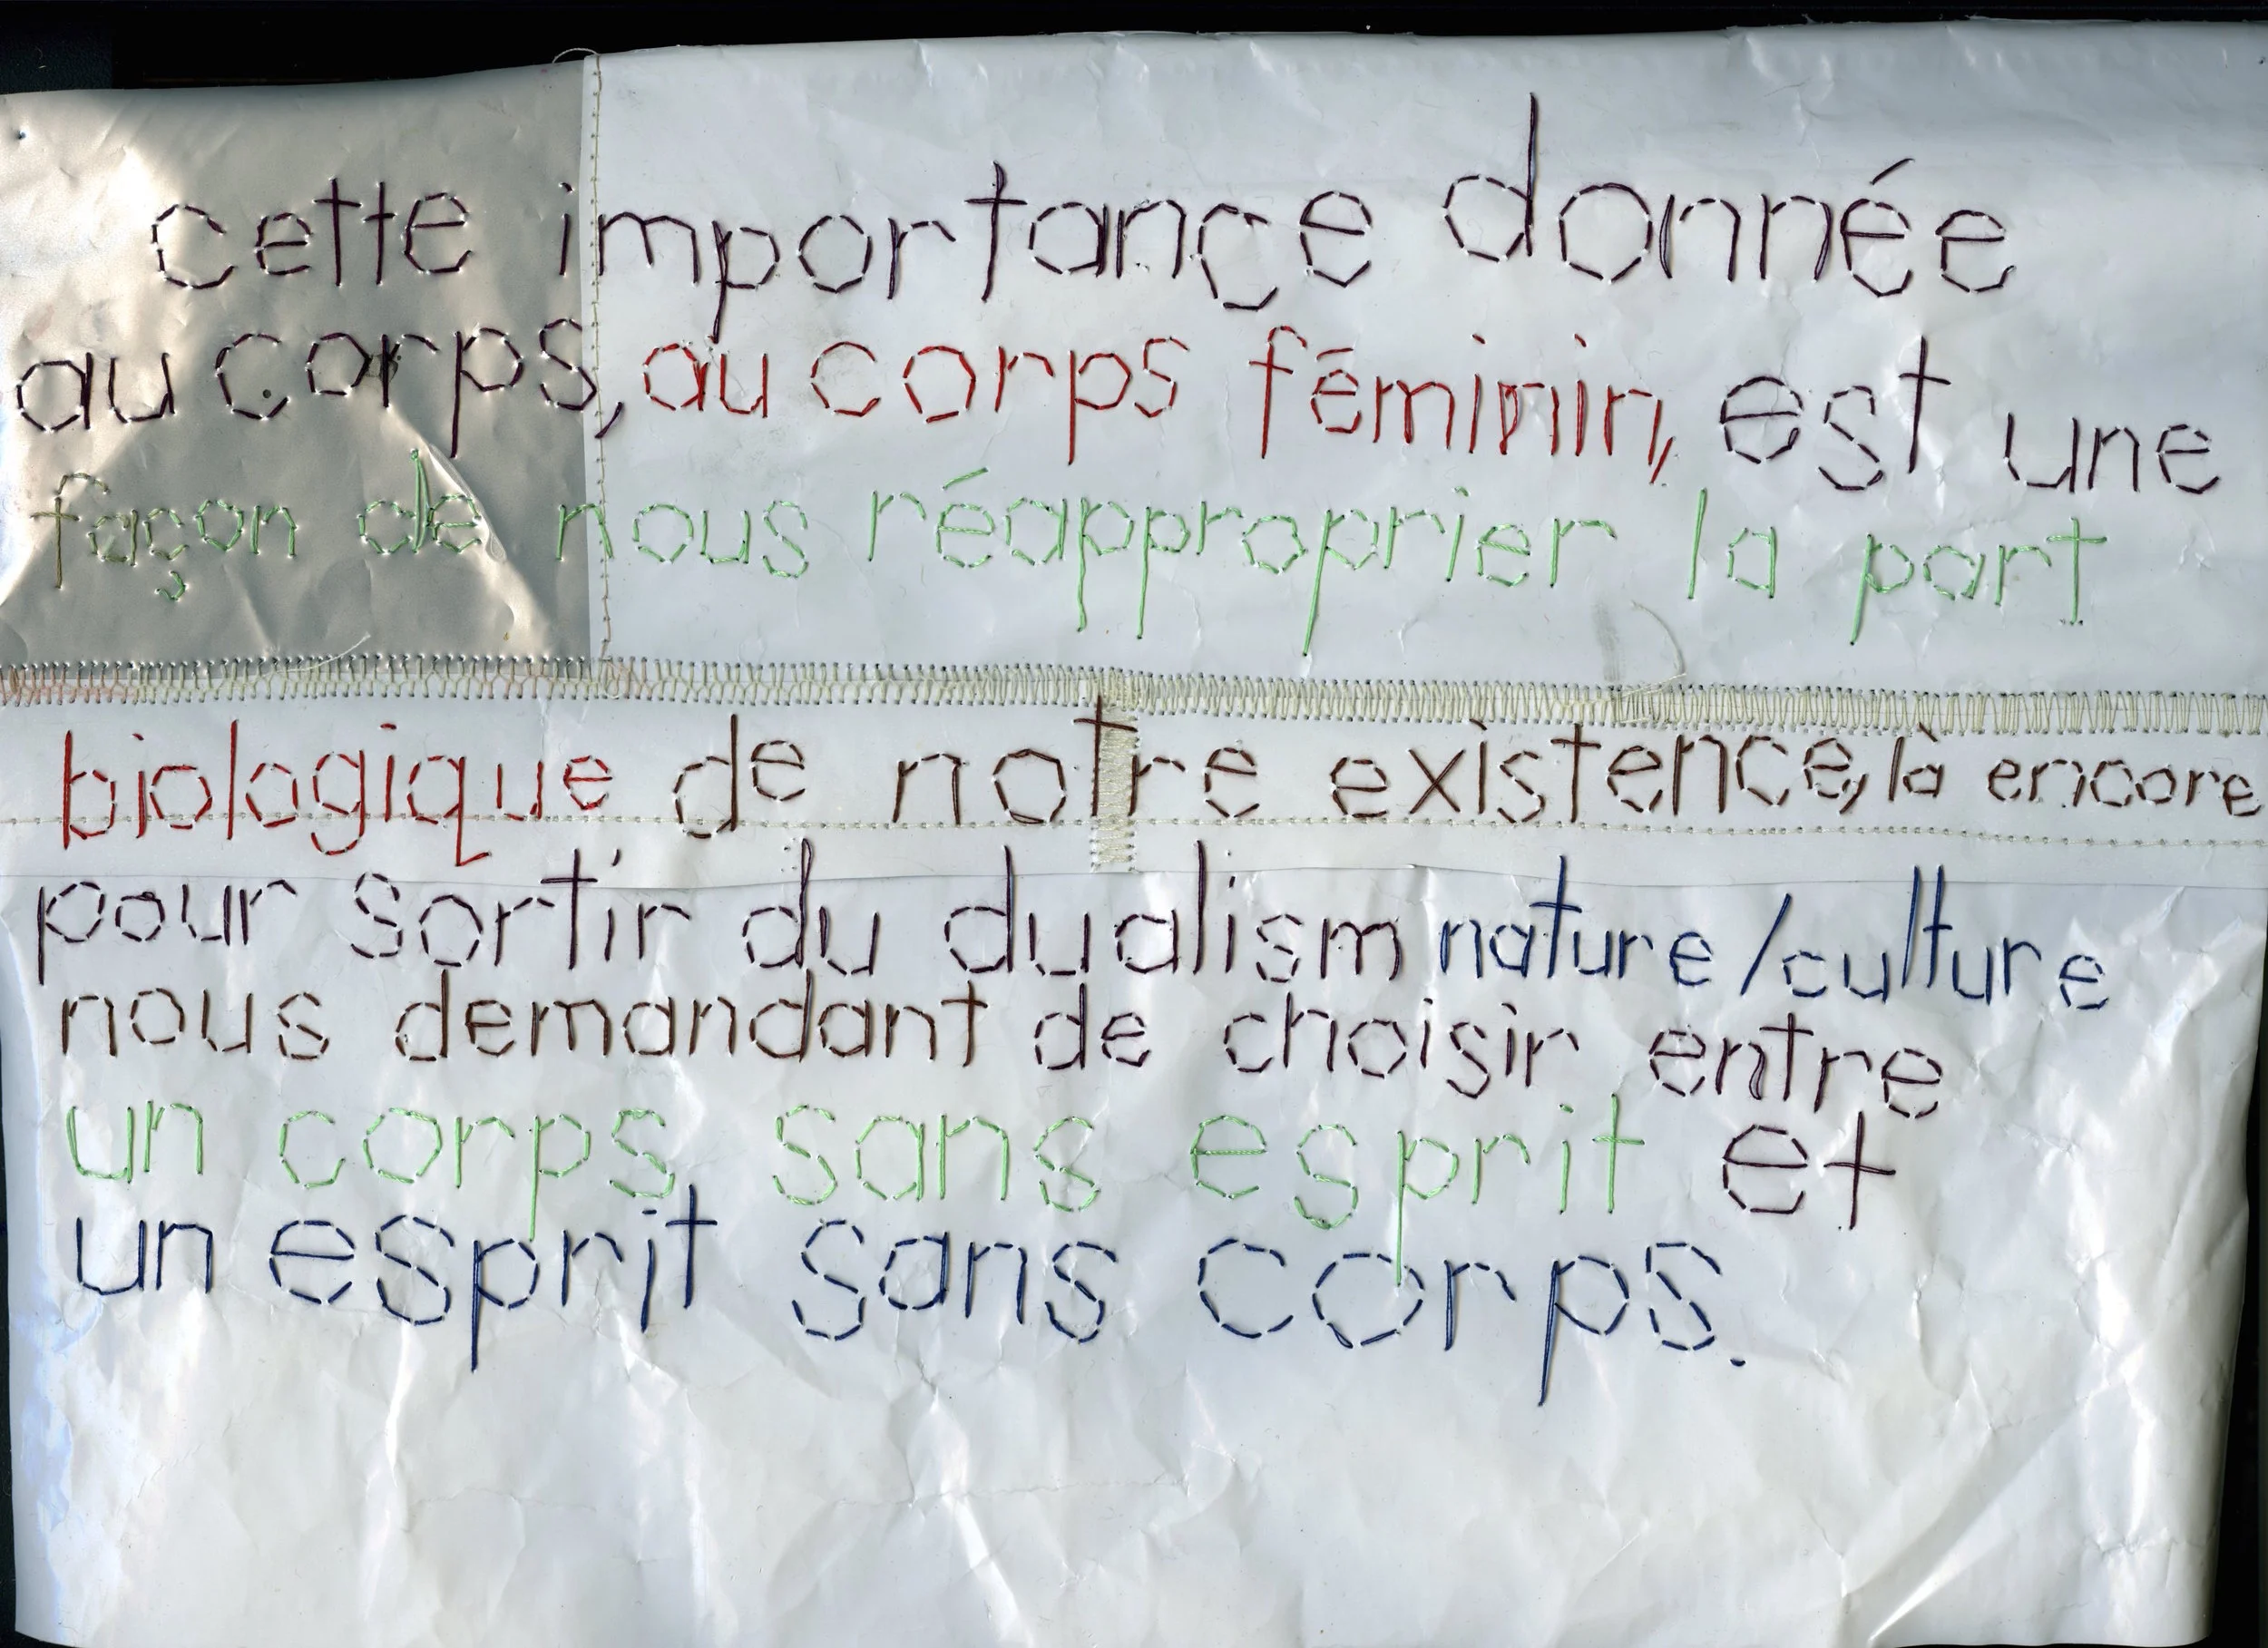 cette importance donnée
au corps, au corps féminin, est une
façon de nous réapproprier la part
biologique de notre existence, là encore
pour sortir du dualism nature/culture
nous demandant de choisir entre
un corps sans esprit et
un esprit sans corps.